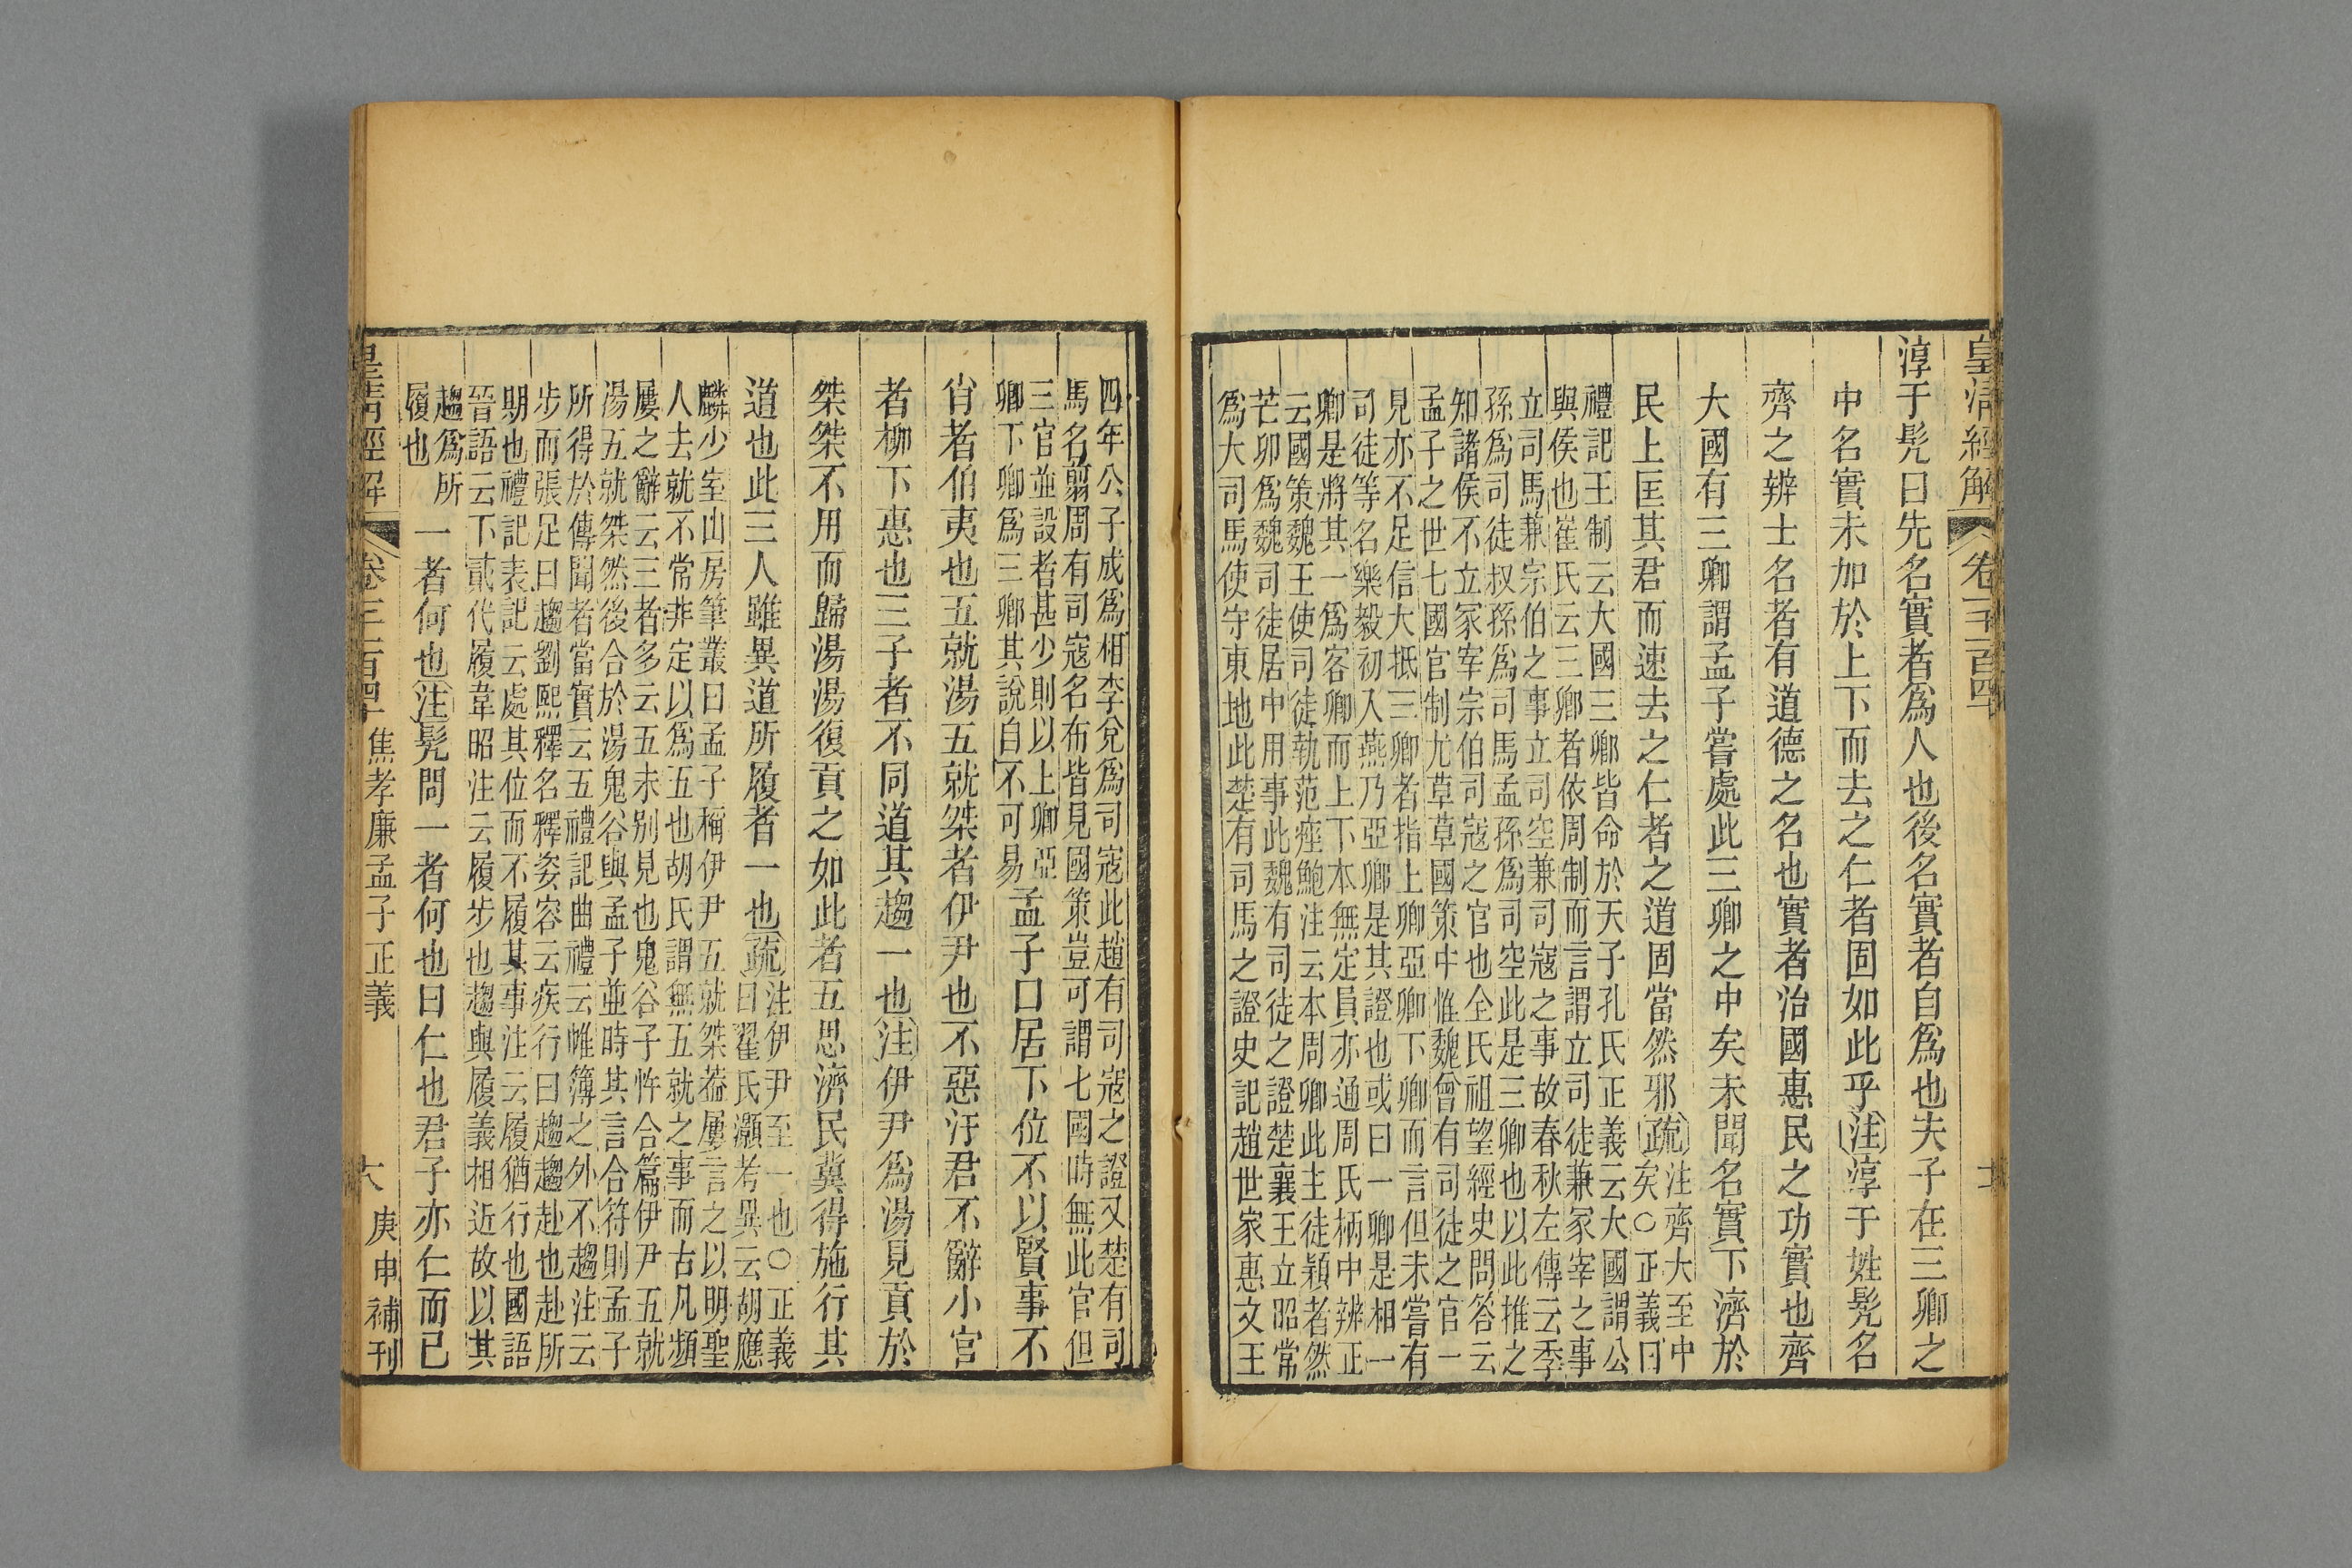 皇清經解 卷一千一百四十
淳于髡曰先名實者爲人也後名實者自爲也夫子在三卿之
中名實未加於上下而去之仁者固如此乎注淳于姓髡名
齊之辨士名者有道德之名也實者治國惠民之功實也齊
大國有三卿謂孟子嘗處此三卿之中矣未聞名實下濟於
民上匡其君而速去之仁者之道固當然邪疏注齊大至中
矣○正義曰
禮記王制云大國三卿皆命於天子孔氏正義云大國謂公
與侯也崔氏云三卿者依周制而言謂立司徒兼冢宰之事
立司馬兼宗伯之事立司空兼司寇之事故春秋左傳云季
孫爲司徒叔孫爲司馬孟孫爲司空此是三卿也以此推之
知諸侯不立冢宰宗伯司寇之官也全氏祖望經史問答云
孟子之世七國官制尤草草國策中惟魏曾有司徒之官一
見亦不足信大抵三卿者指上卿亞卿下卿而言但未嘗有
司徒等名樂毅初入燕乃亞卿是其證也或曰一卿是相一
卿是將其一爲客卿而上下本無定員亦通周氏柄中辨正
云國策魏王使司徒執范痤鮑注云本周卿此主徒潁者然
芒卯爲魏司徒居中用事此魏有司徒之證楚襄王立昭常
爲大司馬使守東地此楚有司馬之證史記趙世家惠文王
四年公子成爲相李兌爲司寇此趙有司寇之證又楚有司
馬名翦周有司寇名布皆見國策豈可謂七國時無此官但
三官並設者甚少則以上卿亞
卿下卿爲三卿其說自不可易孟子曰居下位不以賢事不
肖者伯夷也五就湯五就桀者伊尹也不惡汙君不辭小官
者柳下惠也三子者不同道其趨一也注伊尹爲湯見貢於
桀桀不用而歸湯湯復貢之如此者五思濟民冀得施行其
道也此三人雖異道所履者一也疏注伊尹至一也○正義
曰翟氏灝考異云胡應
麟少室山房筆叢曰孟子稱伊尹五就桀葢屢言之以明聖
人去就不常非定以爲五也胡氏謂無五就之事而古凡頻
屢之辭云三者多云五未别見也鬼谷子忤合篇伊尹五就
湯五就桀然後合於湯鬼谷與孟子並時其言合符則孟子
所得於傳聞者當實云五禮記曲禮云帷簿之外不趨注云
步而張足曰趨劉熙釋名釋姿容云疾行曰趨趨赴也赴所
期也禮記表記云處其位而不履其事注云履猶行也國語
晉語云下貳代履韋昭注云履步也趨與履義相近故以其
趨爲所
履也一者何也注髡問一者何也曰仁也君子亦仁而已
皇清經解 卷一千一百四十 焦孝廉孟子正義 庚申補刊